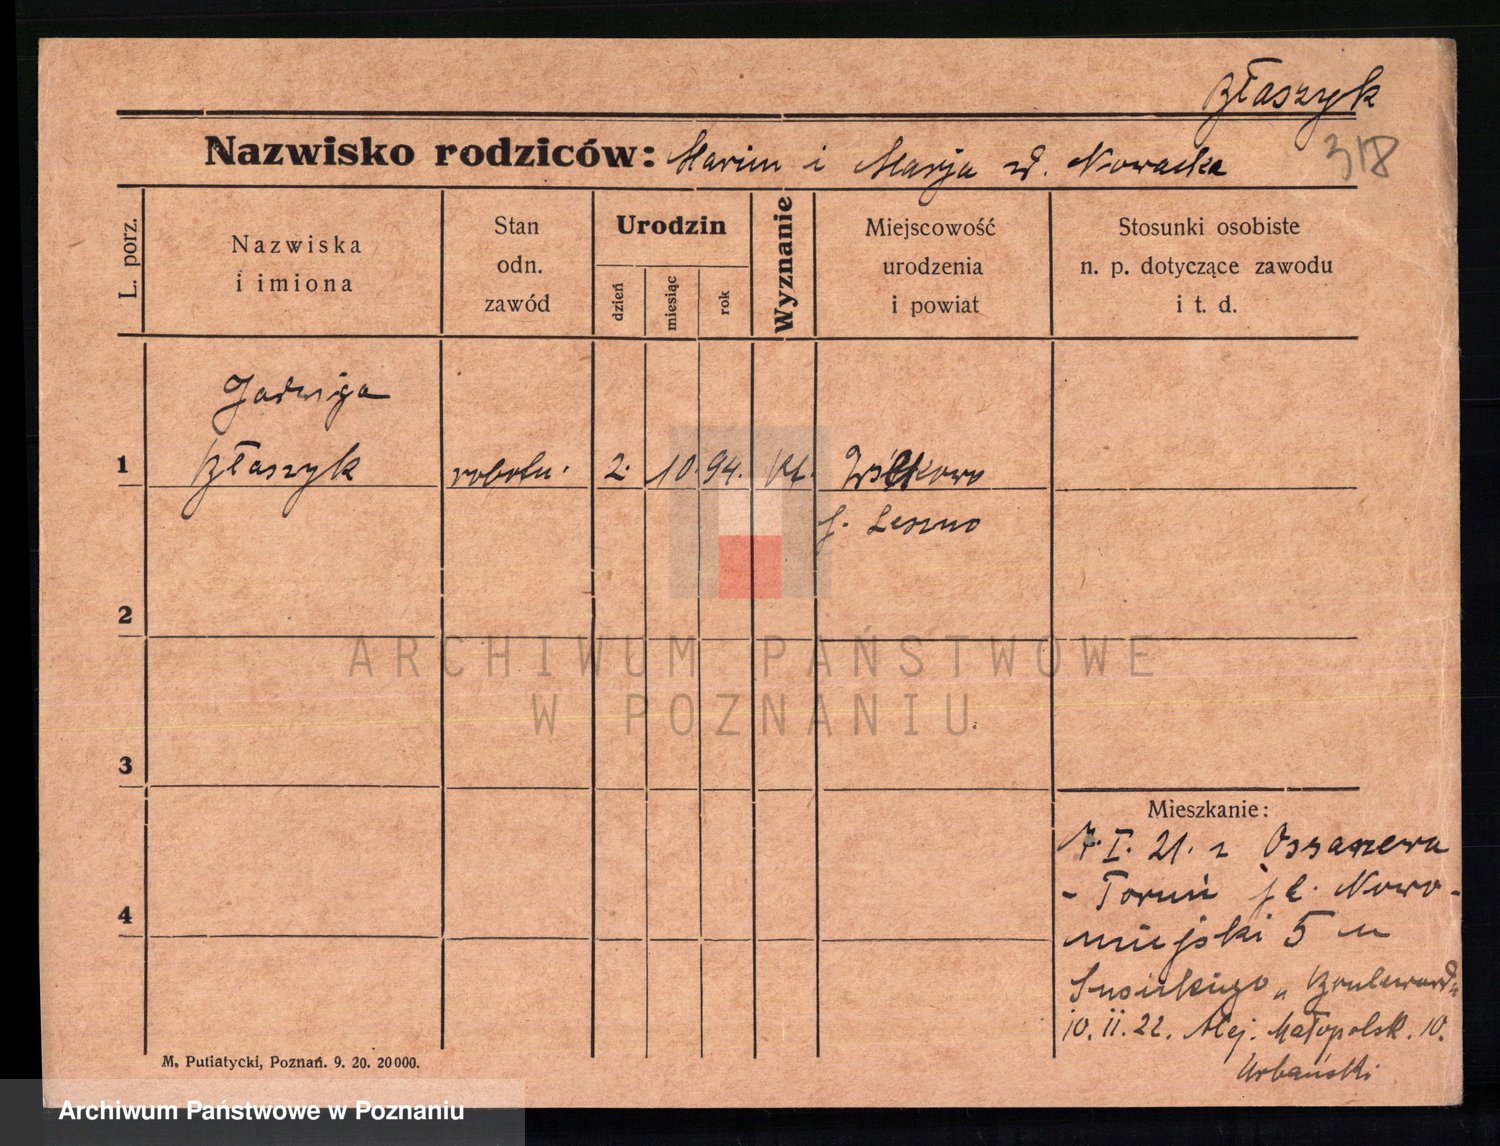 Błaszyk
318
Nazwisko rodziców: Marcin i Marja zd. Nowacka
L. porz.
Nazwiska
i imiona
Stan
odn.
zawód
Urodzin
dzień
miesiąc
rok
Wyznanie
Miejscowość
urodzenia
i powiat
Stosunki osobiste
n. p. dotyczące zawodu
i t. d.
Jadwiga
1 Błaszyk robotn. 2. 10. 94. kt. Wilkowo
p. Leszno
2
3
4
Mieszkanie:
7. I. 21. z
- Toruń pl. Nowo-
miejski 5 u
" Boulevard"
10. II. 22. Alej. Małopolsk. 10.
Urbański
M. Putiatycki, Poznań. 9. 20. 20000.
ARCHIWUM PAŃSTWOWE
W POZNANIU
Archiwum Państwowe w Poznaniu